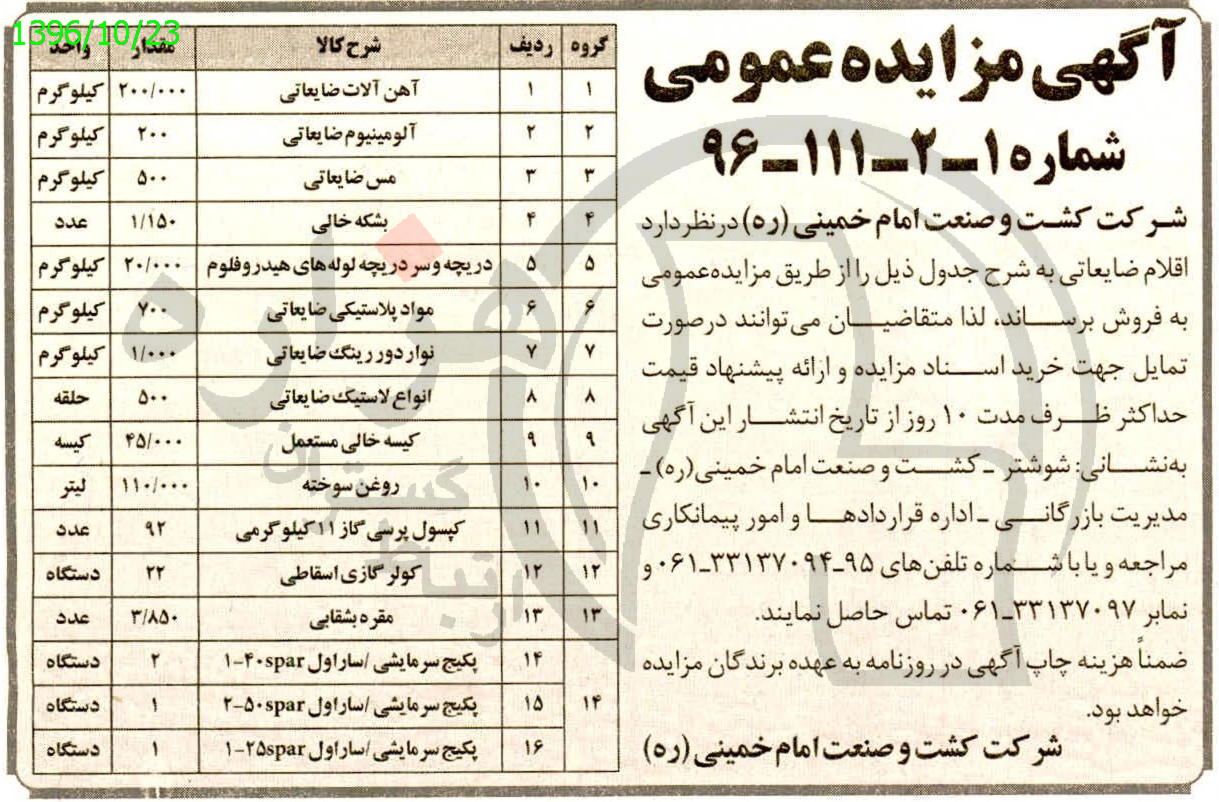 1396/10/23
آگهی مزایده عمومی
شماره ۱ـ۲ـ۱۱۱ـ۹۶
شرکت کشت و صنعت امام خمینی (ره) در نظر دارد
اقلام ضایعاتی به شرح جدول ذیل را از طریق مزایده عمومی
به فروش برساند، لذا متقاضیان می‌توانند درصورت
تمایل جهت خرید اسناد مزایده و ارائه پیشنهاد قیمت
حداکثر ظرف مدت ۱۰ روز از تاریخ انتشار این آگهی
به‌نشانی: شوشتر ـ کشت و صنعت امام خمینی(ره) ـ
مدیریت بازرگانی ـ اداره قراردادها و امور پیمانکاری
مراجعه و یا با شماره تلفن‌های ۹۵ـ۳۳۱۳۷۰۹۴ـ۰۶۱ و
نمابر ۳۳۱۳۷۰۹۷ـ۰۶۱ تماس حاصل نمایند.
ضمناً هزینه چاپ آگهی در روزنامه به عهده برندگان مزایده
خواهد بود.
شرکت کشت و صنعت امام خمینی (ره)
گروه ردیف شرح کالا مقدار واحد
۱ ۱ آهن آلات ضایعاتی ۲۰۰/۰۰۰ کیلوگرم
۲ ۲ آلومینیوم ضایعاتی ۲۰۰ کیلوگرم
۳ ۳ مس ضایعاتی ۵۰۰ کیلوگرم
۴ ۴ بشکه خالی ۱/۱۵۰ عدد
۵ ۵ دریچه وسر دریچه لوله‌های هیدروفلوم ۲۰/۰۰۰ کیلوگرم
۶ ۶ مواد پلاستیکی ضایعاتی ۷۰۰ کیلوگرم
۷ ۷ نوار دور رینگ ضایعاتی ۱/۰۰۰ کیلوگرم
۸ ۸ انواع لاستیک ضایعاتی ۵۰۰ حلقه
۹ ۹ کیسه خالی مستعمل ۴۵/۰۰۰ کیسه
۱۰ ۱۰ روغن سوخته ۱۱۰/۰۰۰ لیتر
۱۱ ۱۱ کپسول پرسی گاز ۱۱ کیلوگرمی ۹۲ عدد
۱۲ ۱۲ کولر گازی اسقاطی ۲۲ دستگاه
۱۳ ۱۳ مقره بشقابی ۳/۸۵۰ عدد
۱۴ پکیج سرمایشی /ساراول ۱-۴۰spar ۲ دستگاه
۱۴ ۱۵ پکیج سرمایشی /ساراول ۲-۵۰spar ۱ دستگاه
۱۶ پکیج سرمایشی /ساراول ۱-۲۵spar ۱ دستگاه
هزاره
گستران
ارتباط